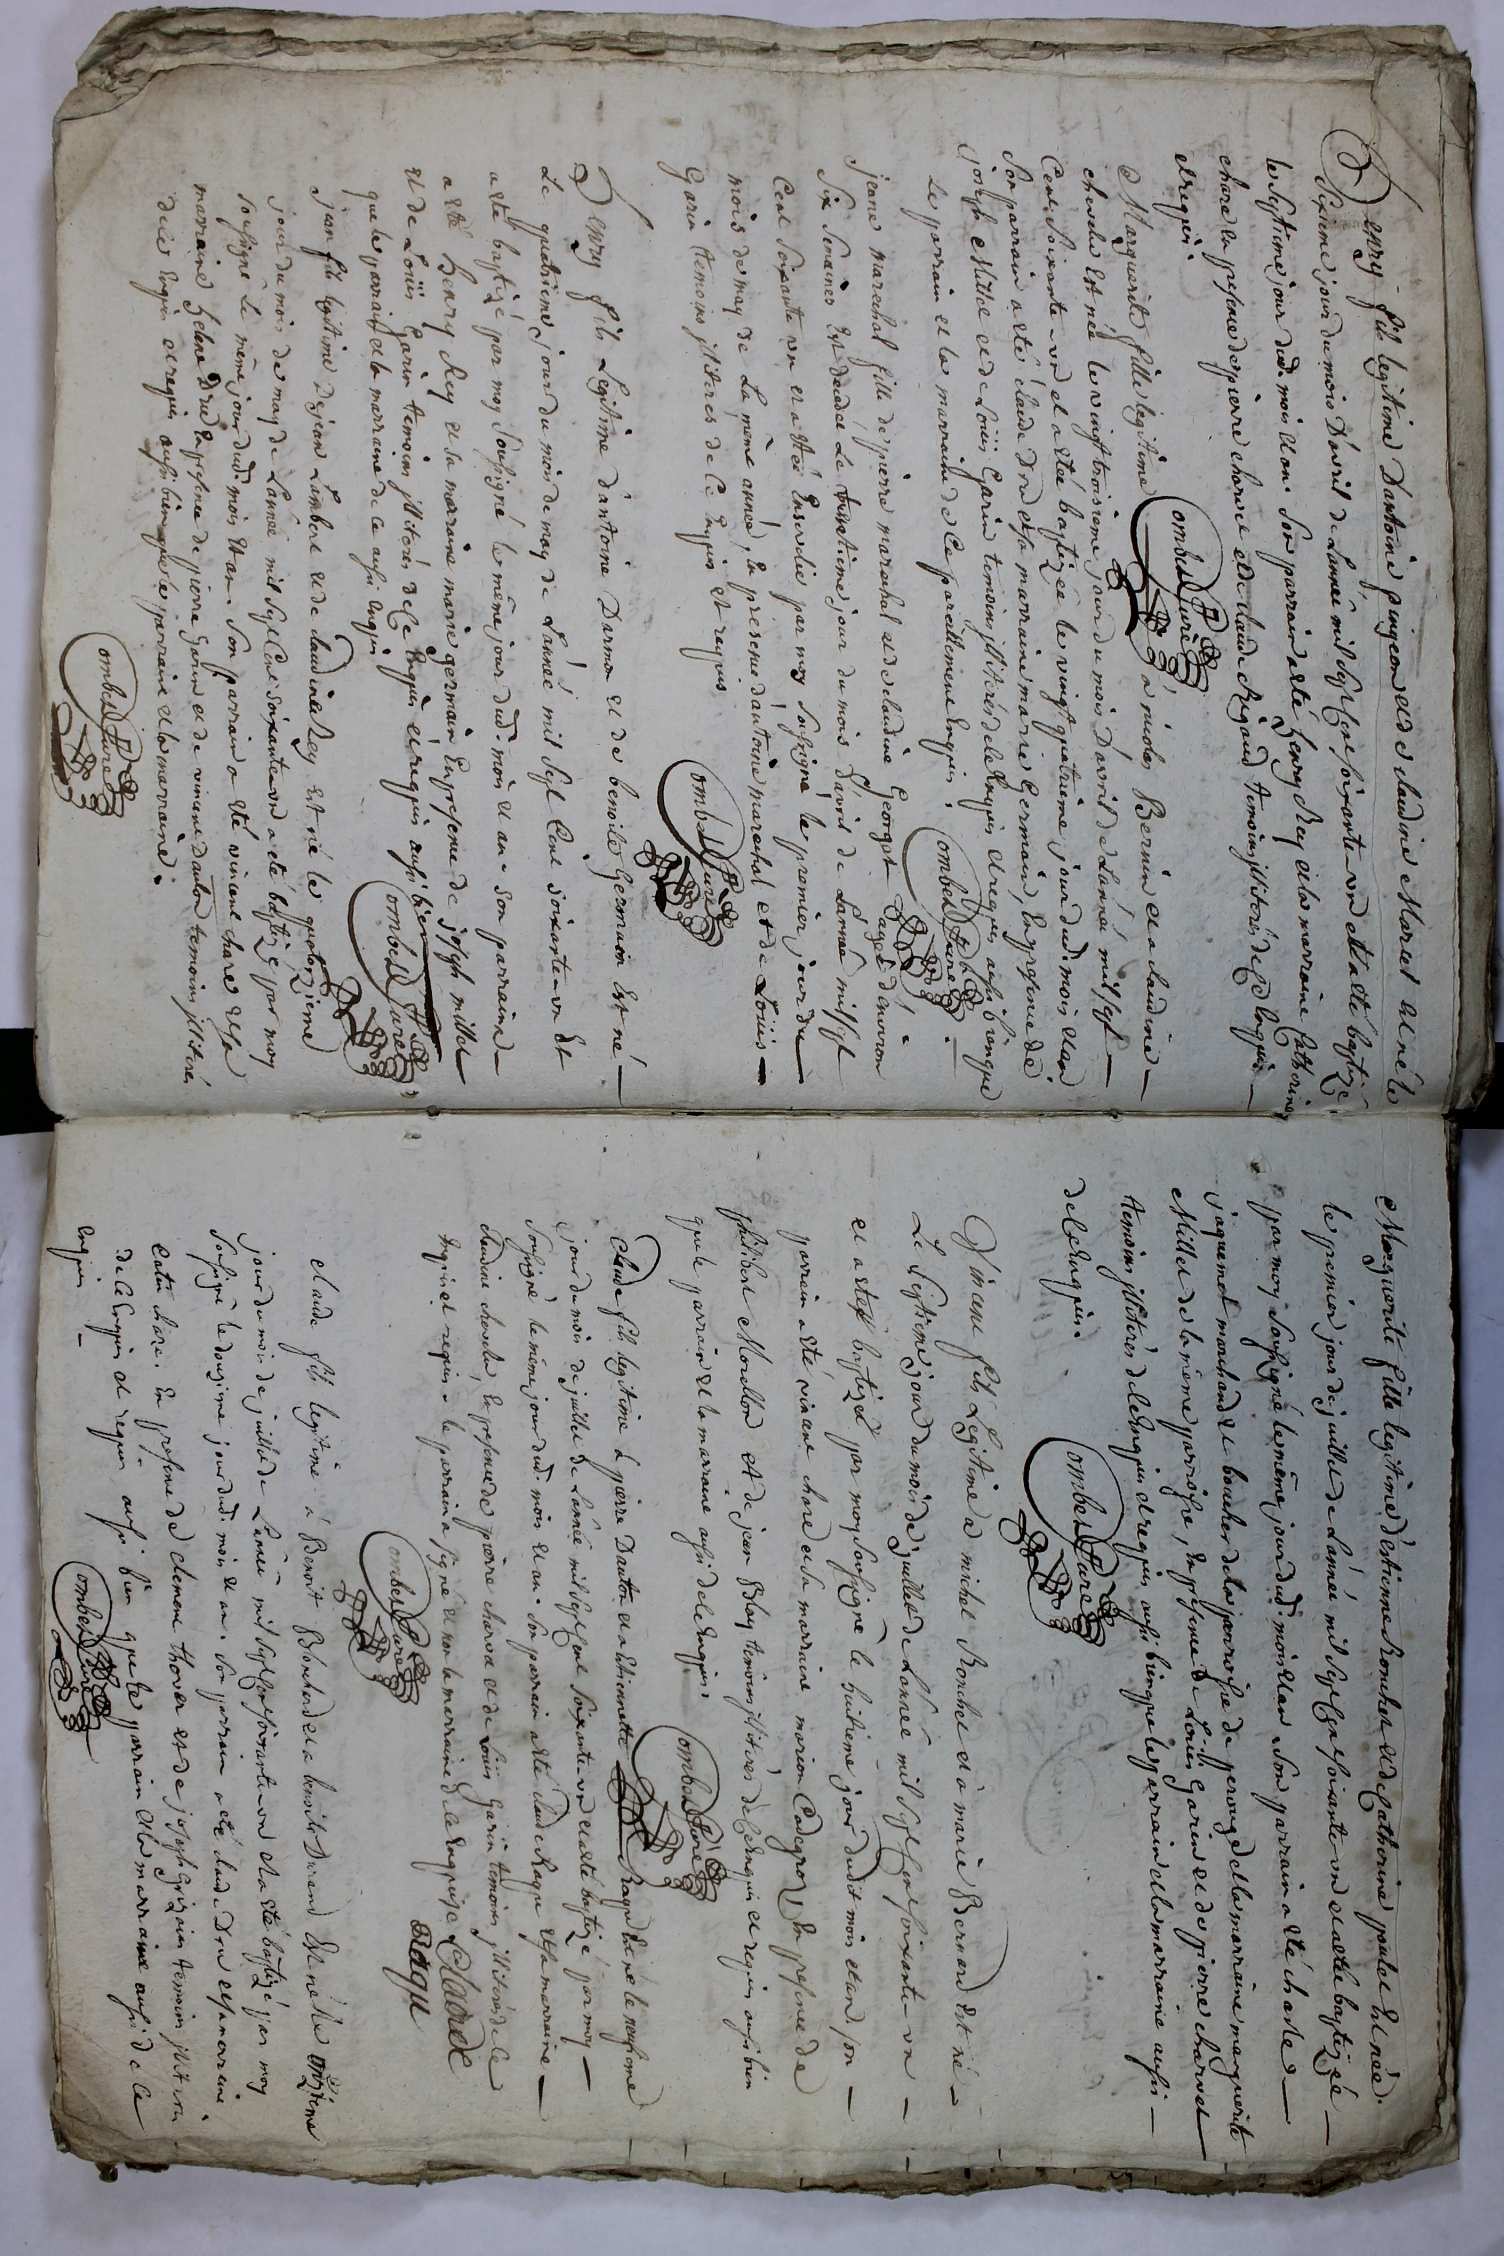 Henry fils legitime D'antoine pingeon et de claudine Maret est né le
sixieme jour du mois D'avril de L'année mil sept cent soixante-un et a été baptizé
le septieme jour dud. mois et an. Son parrain a eté henry Rey et la marraine Catherine
chare en presence de pierre charve et de claude Rigaud temoins illiterés de ce Enquis
et requis
ombet Curé
Marguerite fille legitime à nicolas Bernin et a claudine
chevalu est née le vingt troisieme jour du mois D'avril de L'année mil sept
Cent soixante-un et a eté baptizée le vingt quatrieme jour dud. mois et an
Son parrain a eté claude Dru et sa marraine marie Germain, En presence de
joseph Millet et de Loüis Garin temoins illiterés de ce Enquis et requis aussi bien que
Le parrain et la marraine de ce pareillement enquis.
ombet Curé
jeanne marechal fille de pierre marechal et de claudine Georget agée d'environ
Six semaines Est decedée Le trentieme jour du mois d'avril de L'année mil sept
Cent soixante un et a étée Ensevelie par moy soussigné le premier jour du
mois de may de La même année, En presence d'antoine marechal et de Loüis
Garin temoins illiterés de Ce Enquis et requis
ombet Curé
Henry fils Legitime d'antoine Darmon et de benoite Germain Est né
Le quatrieme jour du mois de may de L'année mil Sept Cent soixante-un Et
a eté baptizé par moy soussigné le même jour dud. mois et an. Son parrain
a eté henry Rey et sa marraine marie germain En presence de joseph millet
et de Loüis Garin temoins illiterés de Ce Enquis et requis aussi bien
que le parrain et la marraine de ce aussi Enquis
ombet Curé
jean fils legitime De jean Lambert et de claudine Rey est né le quatorzieme
jour du mois de may de L'année mil sept Cent soixante un a été baptizé par moy
soussigné Le même jour dud. mois et an. Son parrain a eté vincent chare et sa
marraine helene Dru En presence de pierre Garin et de vincent dauton temoins illiterés
de ce Enquis et requis aussi bien que le parrain et la marraine.
ombet Curé
Marguerite fille legitime d'estienne Boucher et de Catherine poulet Est née
le premier jour de juillet de L'année mil sept Cent soixante-un et a etée baptizée
par moy soussigné le même jour dud. mois et an. Son parrain a eté charle
jaquemet marchand et boucher de la parroisse de perouge et la marraine marguerite
Millet de la même parroisse, En presence de Loüis Garin et de pierre charvet
temoins illiterés de ce Enquis et requis aussi bien que le parrain et la marraine aussi
de Ce Enquis.
ombet Curé
Vincent fils Legitime a michel Ronchet et à marie Bernard Est né
Le septieme jour du mois de juillet de L'année mil sept Cent soixante-un
et a eté baptizé par moy soussigné le huitieme jour dudit mois et an, son
parrain a eté vincent chare et sa marraine marion Cadegros, En presence de
philibert Morellon et de jean Blay temoins illiterés de Ce Enquis et requis aussi bien
que le parrain et la marraine aussi de ce Enquis.
ombet Curé
Claude fils legitime a pierre Dauton et a Etiennette Rague Est né le neufieme
jour du mois de juillet de L'année mil sept Cent soixante un et a eté baptizé par moy
Soussigné le même jour dud. mois et an. Son parrain a eté claude Rague et sa marraine
claudine chevalu, En presence de pierre charve et de Loüis Garin temoins illiterés de ce
Enquis et requis. le parrain a signé et non la marraine de ce Enquise Claude
ombet Curé
Rague
claude fils legitime à Benoit Bonhard et a benoite Durand Est né le onzieme
jour du mois de juillet de L'année mil sept Cent soixante-un et a eté baptizé par moy
soussigné le douzieme jour dud. mois et an. Son parrain a eté claude Dru et sa marraine
catin chare. En presence de clement thover et de joseph temoins illiterés
de Ce Enquis et requis aussi bien que le parrain et la marraine aussi de Ce
Enquis
ombet Curé